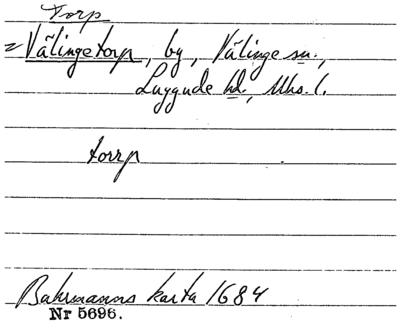 Torp
= Välingetorp, by, Välinge sn.,
Luggude hd., Mhs. l.
torrp
Buhrmanns karta 1684
Nr 5696.